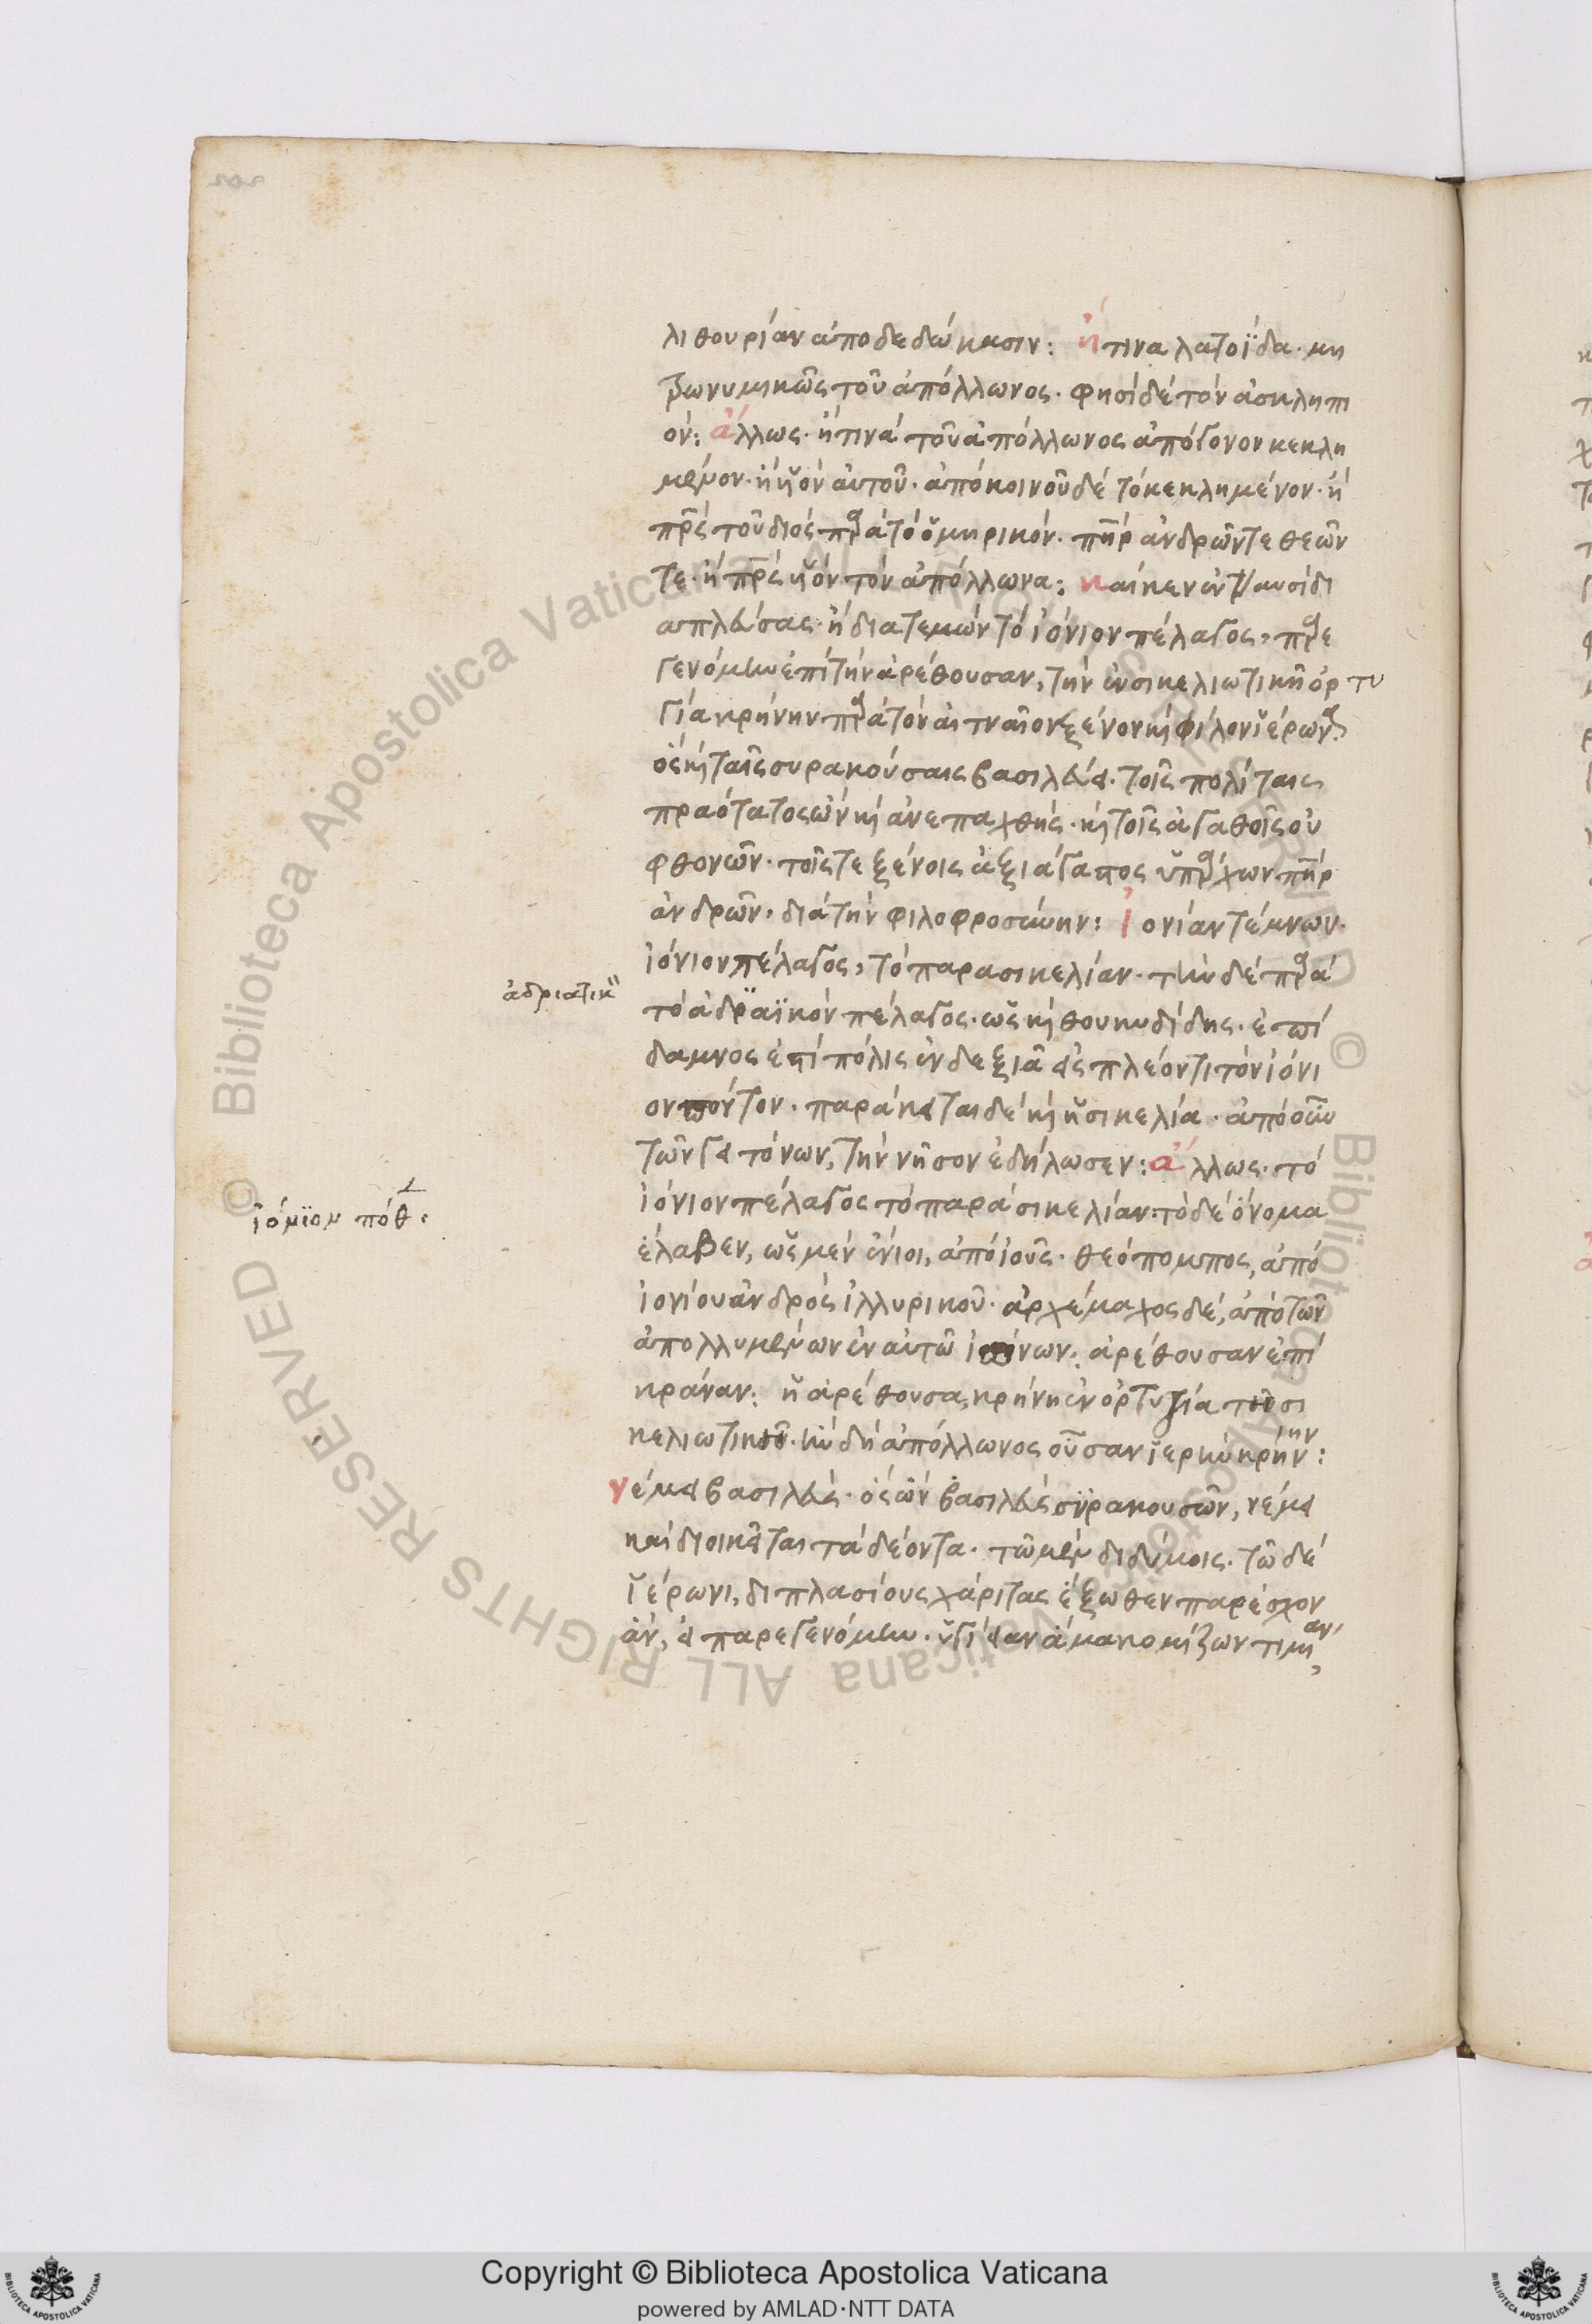 λιθουρίαν ἀποδεδώκασιν: ἤ τινα λατοΐδα· μη
τρωνυμικῶς τοῦ ἀπόλλωνος· φησὶ δὲ τὸν ἀσκληπι
όν: ἄλλως· ἤ τινα τοῦ ἀπόλλωνος ἀπόγονον κεκλη
μένον· ἢ υἱὸν αὐτοῦ· ἀπὸ κοινοῦ δὲ τὸ κεκλημένον· ἢ
πρς τοῦ διός παρὰ τὸ ὁμηρικόν· πηρ ἀνδρῶν τε θεῶν
τε· ἢ πρς υἱὸν τὸν ἀπόλλωνα: καί κεν ἐν ναυσὶ δι
απλεύσας· ἢ διατεμὼν τὸ ἰόνιον πέλαγος, παρε
γενόμην ἐπὶ τὴν ἀρέθουσαν, τὴν ἐν σικελιωτικῆ ὀρτυ
γία κρήνην παρὰ τὸν αἰτναῖον ξένον καὶ φίλον ἱέρωνα
ὃς καὶ ταῖς συρακούσαις βασιλεύει· τοῖς πολίταις
πραότατος ὢν καὶ ἀνεπαχθής· καὶ τοῖς ἀγαθοῖς οὐ
φθονῶν· τοῖς τε ξένοις ἀξιάγαπος ὑπάρχων πηρ
ἀνδρῶν· διὰ τὴν φιλοφροσύνην: ἰονίαν τέμνων·
ἰόνιον πέλαγος, τὸ παρα σικελίαν· τὴν δὲ παρὰ
ἀδριατικὸν
τὸ ἀδραϊκὸν πέλαγος· ὡς καὶ θουκυδίδης· ἐπί
δαμνος ἐπὶ πόλις ἐν δεξιᾶ εἰσπλέοντι τὸν ἰόνι
ον πόντον· παράκειται δὲ καὶ ἡ σικελία· ἀπὸ οὖν
τῶν γειτόνων, τὴν νῆσον ἐδήλωσεν: ἄλλως· τὸ
ἰόνιον πόθεν·
ἰόνιον πέλαγος τὸ παρὰ σικελίαν· τὸ δὲ ὄνομα
ἔλαβεν, ὡς μὲν ἔνιοι, ἀπὸ ἰοῦς· θεόπομπος, ἀπὸ
ἰονίου ἀνδρὸς ἰλλυρικοῦ· ἀρχέμαχος δέ, ἀπὸ τῶν
ἀπολλυμένων ἐν αὐτῶ ἰώνων: ἀρέθουσαν ἐπὶ
κράναν: ἡ ἀρέθουσα, κρήνη ἐν ὀρτυγία τοῦ σι
κελιωτικοῦ· ἣν δὴ ἀπόλλωνος οὖσαν ἱερὴν κρήνην:
νέμει βασιλεύς· ὃς ὢν βασιλεὺς συρακουσῶν, νέμει
καὶ διοικεῖται τὰ δέοντα· τῶ μὲν διδύμοις· τῶ δὲ
ἱέρωνι, διπλασίους χάριτας ἔξωθεν παρέσχον
ἄν, εἰ παρεγενόμην· ὑγίειαν ἅμα κομίζων τιμίαν,